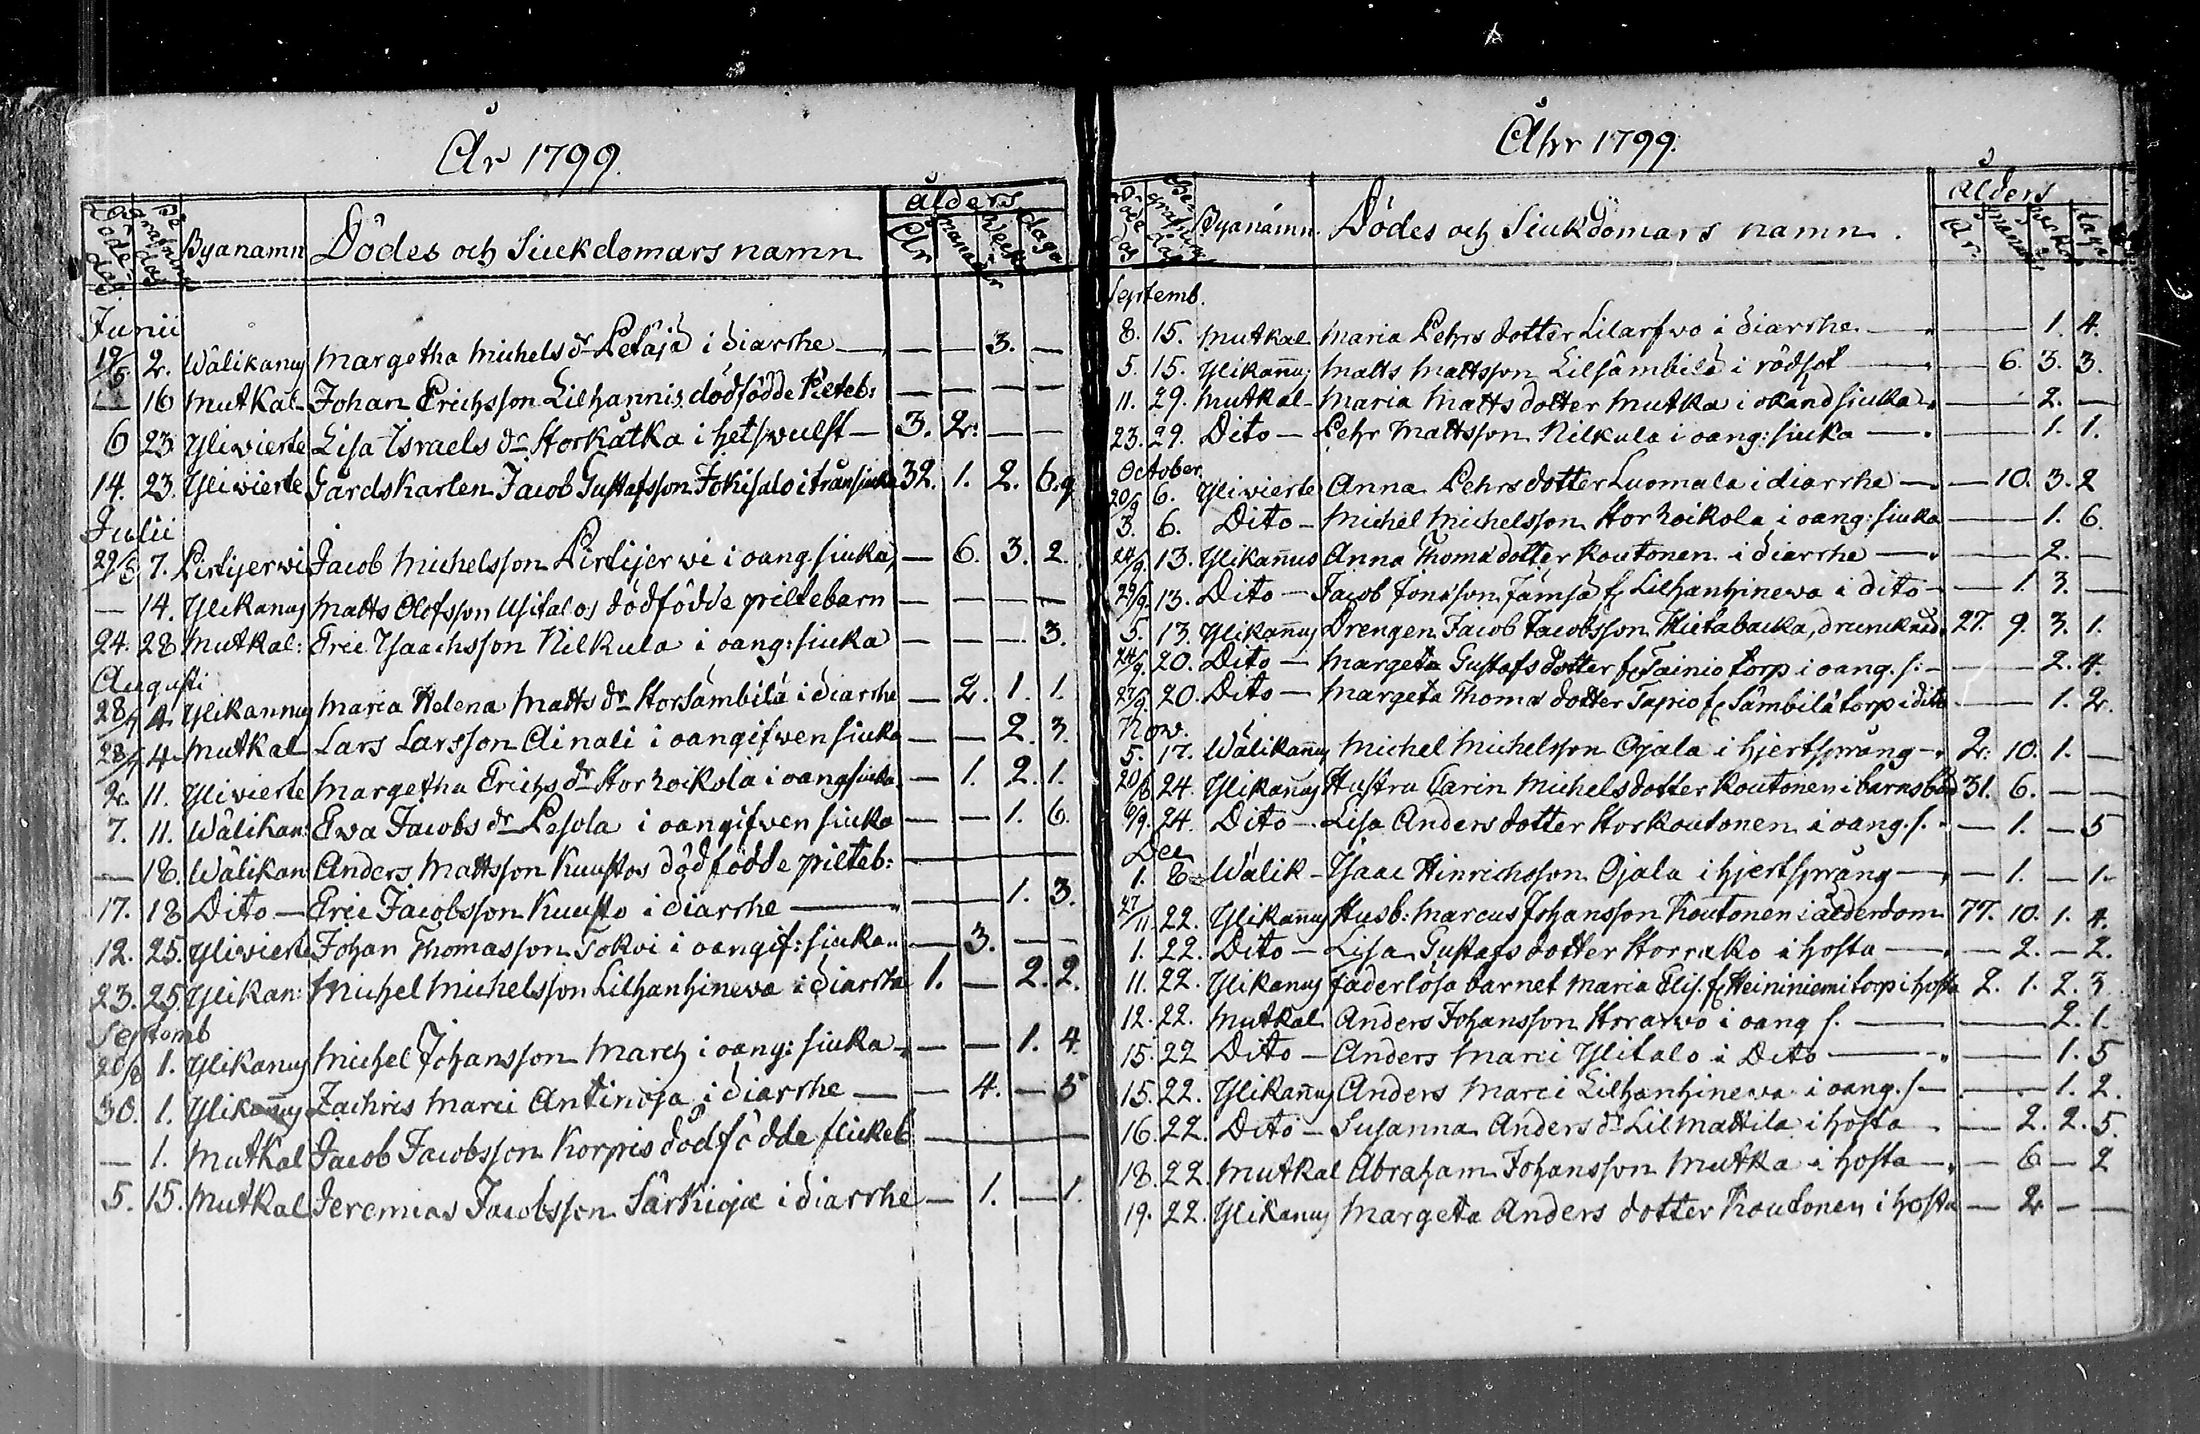 År 1799.
Döde dag Begrafnings dag Byanamn Dödes och Siuckdomars namn ålders År månader Veckor dagar
Junii
19/5 2. Wälikanus Margetha Michels dr Petäjä i diarrhe — — 3. —
— 16 Mutkal Johan Erichsson Lilhannis dödfödde Pilteb: — — — —
6 23 Ylivierte Lisa Israels dr Storkätkä i hetsvulst — 3. 2. — —
14. 23. Ylivierte Gårdskarlen Jacob Gustafsson Jokisalo i trånsiuka 32. 1. 2. 6.
Julii
29/6 7. Pirtijerwi Jacob Michelsson Pirtijerwi i oang. siuka — 6. 3. 2.
— 14. Ylikanus Matts Olofsson Usitalos dödfödde piltebarn — — — —
24. 28 Mutkal: Eric Isaachsson Nilkula i oang: siuka — — — 3.
Augusti
28/7 4. Ylikannus Maria Helena Matts dr Storsämbilä i diarrhe — 2. 1. 1.
28/7 4. Mutkal Lars Larsson Ainali i oangifwen siuka — — 2. 3.
2. 11. Ylivierte Margetha Erichs dr Storhoikola i oang siuka. — 1. 2. 1.
7. 11. Wälikan: Ewa Jacobs dr Pesola i oangifwen siuka — — 1. 6.
— 18. Wälikan Anders Mattsson Kuustos dödfödde pilteb: —
17. 18 Dito — Eric Jacobsson Kuusto i diarrhe — 1. 3.
12. 25. Ylivierte Johan Thomasson Tokoi i oangif: siuka — 3. — —
23. 25. Ylikan: Michel Michelsson Lilhanhinewa i diarrhe 1. — 2. 2.
Septemb
20/8 1. Ylikanus Michel Johansson March i oang: siuka — — 1. 4.
30. 1. Ylikannus Zachris Marci Antinoja i diarrhe — — 4. — 5
— 1. Mutkal Jacob Jacobsson Korpis dödfödde flickeb —
5. 15. Mutkal Jeremias Jacobsson Särkioja i diarrhe — 1. — 1.
Åhr 1799.
Döde dag Begrafnings dag Byanamn Dödes och Siukdomars namn. ålders År månader veckor dagar
Septemb.
8. 15. Mutkal Maria Pehrs dotter Lilarfwo i diarrhe — 1. 4.
5. 15. Ylikannus Matts Mattsson Lilsämbilä i rödsot — 6. 3. 3.
11. 29. Mutkal Maria Matts dotter Mutka i okänd siuka — 2. —
23. 29. Dito — Pehr Mattsson Nilkula i oang: siuka — 1. 1.
October
20/9 6. Ylivierte Anna Pehrsdotter Luomala i diarrhe — 10. 3. 2
3. 6. Dito — Michel Michelsson Storhoikola i oang: siuka — 1. 6.
24/9. 13. Ylikannus Anna Thomæ dotter Koutonen i diarrhe — 2. —
29/9. 13. Dito — Jacob Jonæsson Jämsä fr Lilhanhinewa i dito — 1. 3. —
5. 13. Ylikannus Drengen Jacob Jacobsson Hietabacka, drunknad. 27. 9. 3. 1.
24/9. 20. Dito — Margeta Gustafs dotter fr Tainio torp i oang. s: — 2. 4.
27/9. 20. Dito — Margeta Thomæ dotter Tapio fr Sämbilä torp i dito — 1. 2.
Nov.
5. 17. Wälikannus Michel Michelsson Ojala i hjertsprång — 2. 10. 1. —
20/8 24. Ylikannus Hustru Carin Michelsdotter Koutonen i barnsbörd 31. 6. — —
6/9. 24. Dito — Lisa Anders dotter Storkoutonen i oang. s. — 1. — 5
Dec
1. 8 Wälik — Isaac Hinrichsson Ojala i hjertsprång — 1. — 1.
27/11. 22. Ylikannus Husb: Marcus Johansson Koutonen i ålderdom 77. 10. 1. 4.
1. 22. Dito — Lisa Gustafs dotter Storrako i hosta — 2. — 2.
11. 22. Ylikanus faderlösa barnet Maria Elis. fr Heininiemi torp i hosta 2. 1. 2. 3
12. 22. Mutkal Anders Johansson Storarwo i oang s. — 2. 1.
15. 22 Dito — Anders Marci Ylitalo i Dito — 1. 5
15. 22. Ylikannus Anders Marci Lilhanhinewa i oang. s — 1. 2.
16. 22. Dito — Susanna Anders dr Lilmattila i hosta — 2. 2. 5.
18. 22. Mutkal Abraham Johansson Mutka i hosta — 6 — 2
19. 22. Ylikanus Margeta Anders dotter Koutonen i hosta — 2. — —